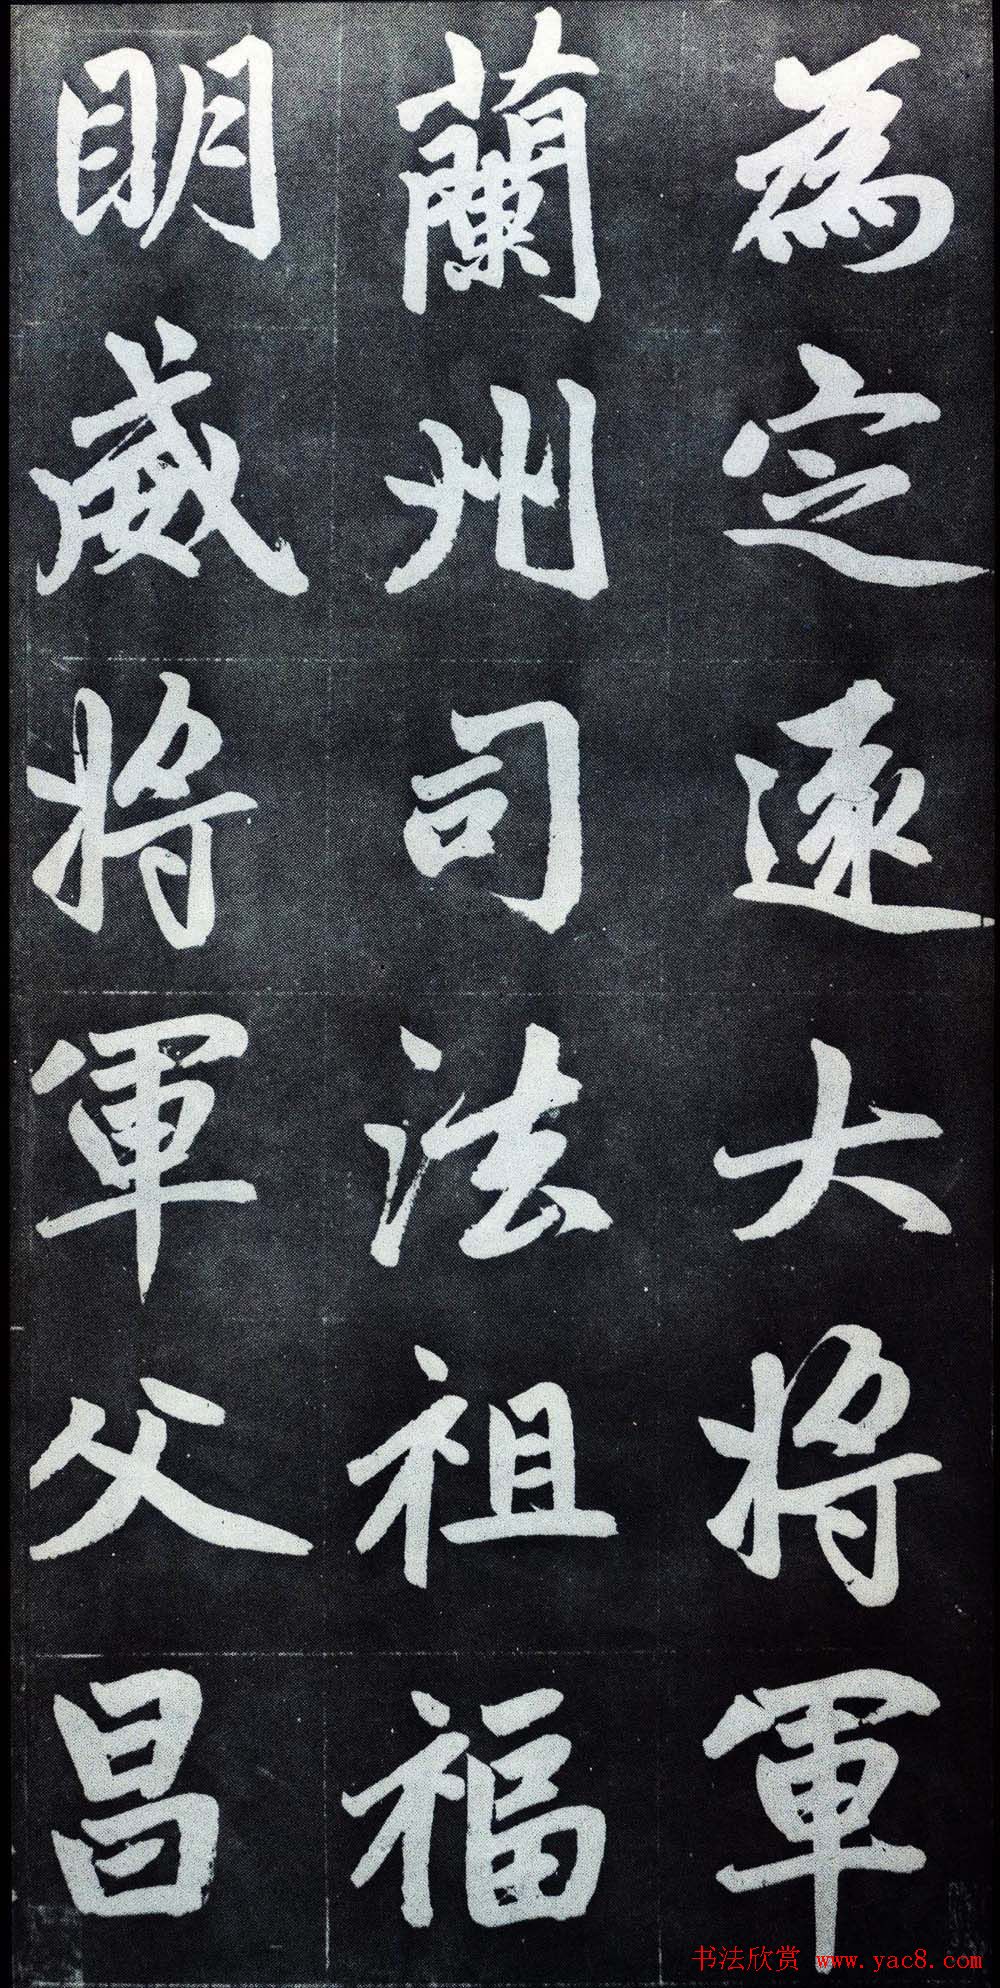 為定遠大將軍
蘭州司法祖福
明威將軍父昌
书法欣赏 www.yac8.com